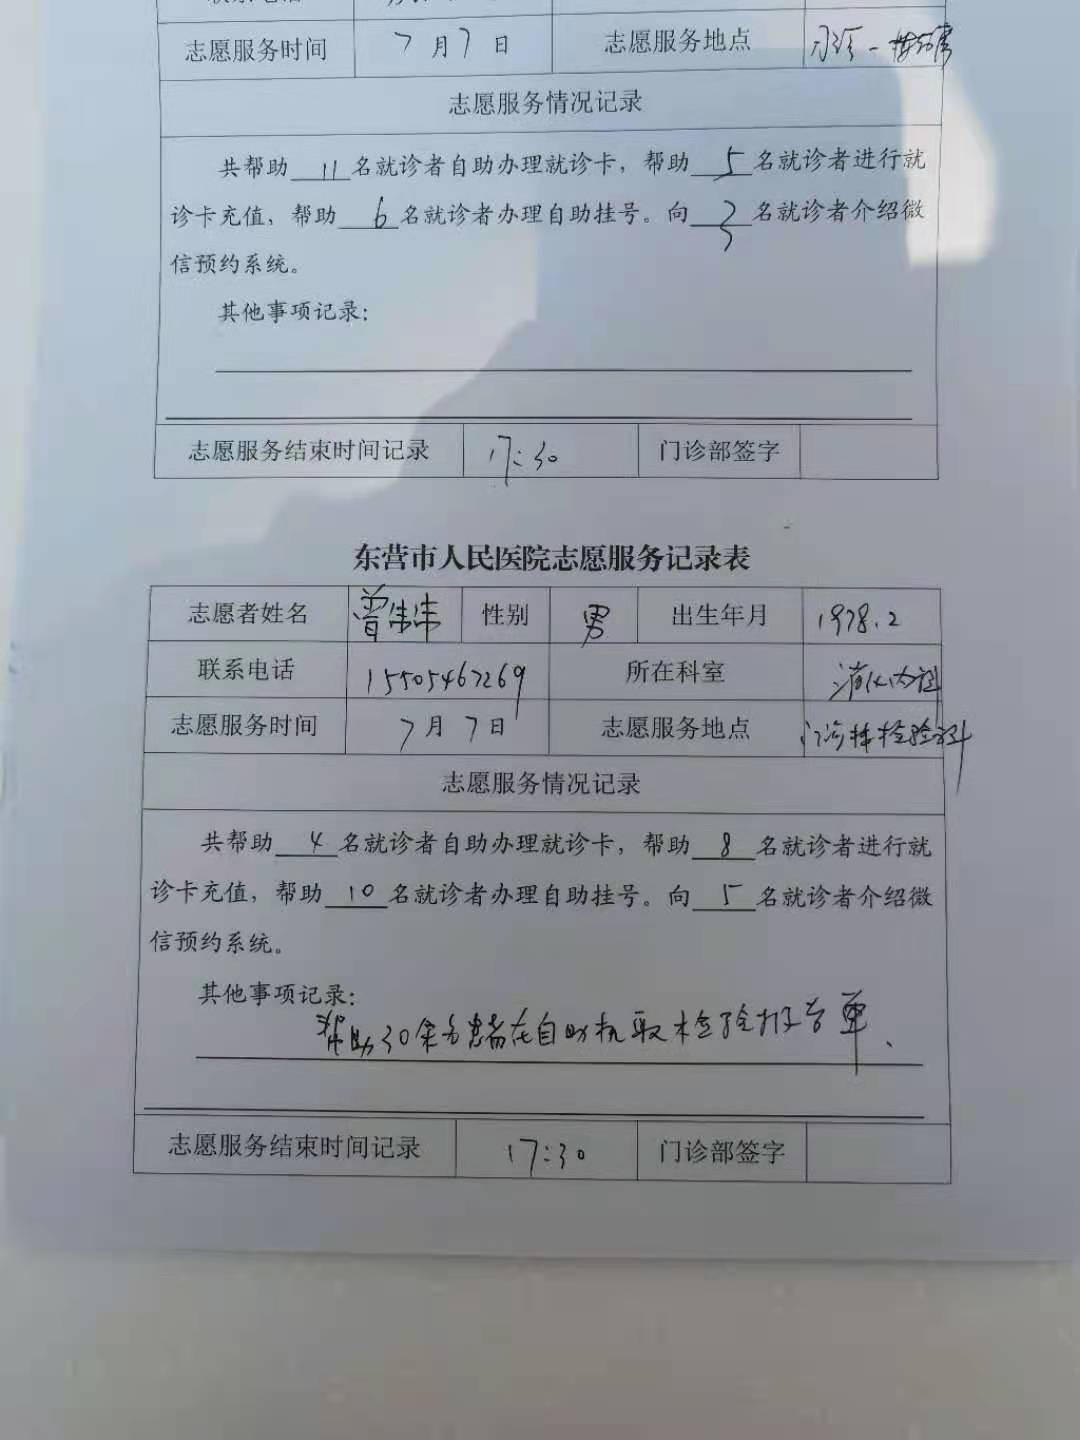 联系电话
志愿服务时间 7月7日 志愿服务地点
志愿服务情况记录
共帮助 11 名就诊者自助办理就诊卡，帮助 5 名就诊者进行就
诊卡充值，帮助 6 名就诊者办理自助挂号。向 名就诊者介绍微
信预约系统。
其他事项记录：
志愿服务结束时间记录 17:30 门诊部签字
东营市人民医院志愿服务记录表
志愿者姓名 曾伟伟 性别 男 出生年月 1978.2
联系电话 15505467269 所在科室 消化内科
志愿服务时间 7月7日 志愿服务地点 门诊楼检验科
志愿服务情况记录
共帮助 4 名就诊者自助办理就诊卡，帮助 8 名就诊者进行就
诊卡充值，帮助 10 名就诊者办理自助挂号。向 5 名就诊者介绍微
信预约系统。
其他事项记录：
帮助30余名患者在自助机取检验报告单、
志愿服务结束时间记录 17:30 门诊部签字